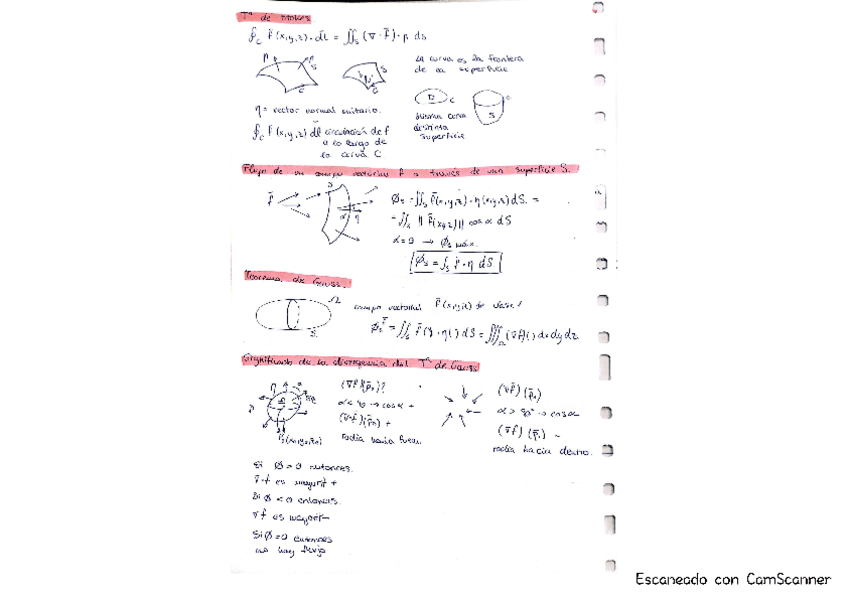 Tª de Stokes
∮c F̄(x,y,z)·dl̄ = ∬s (∇·F̄)·η ds
La curva es la frontera
de la superficie
η = vector normal unitario.
misma curva
distinta
superficie
∮c F̄(x,y,z) dl̄ circulación de f
a lo largo de
la curva C
Flujo de un campo vectorial f a través de una superficie S.
Øs = ∬s F̄(x,y,z)·η(x,y,z) dS. =
= ∬s ‖F̄(x,y,z)‖ cos α dS
α=0 → Øs máx.
Øs = ∫s F̄·η dS
Teorema de Gauss.
campo vectorial F̄(x,y,z) de clase 1
∬s F̄( )·η( ) dS = ∭Ω (∇F̄)( ) dx dy dz
Significado de la divergencia del Tª de Gauss
(∇F̄)(p̄₀)?
α<90 → cos α +
(∇F̄)(p̄₀) +
radia hacia fuera.
(∇F̄)(p̄₀)
α > 90° → cos α
(∇F̄)(p̄₀) −
radia hacia dentro.
Si Ø > 0 entonces.
∇·f es mayorit +
Si Ø < 0 entonces.
∇f es mayorit −
Si Ø = 0 entonces
no hay flujo
Escaneado con CamScanner